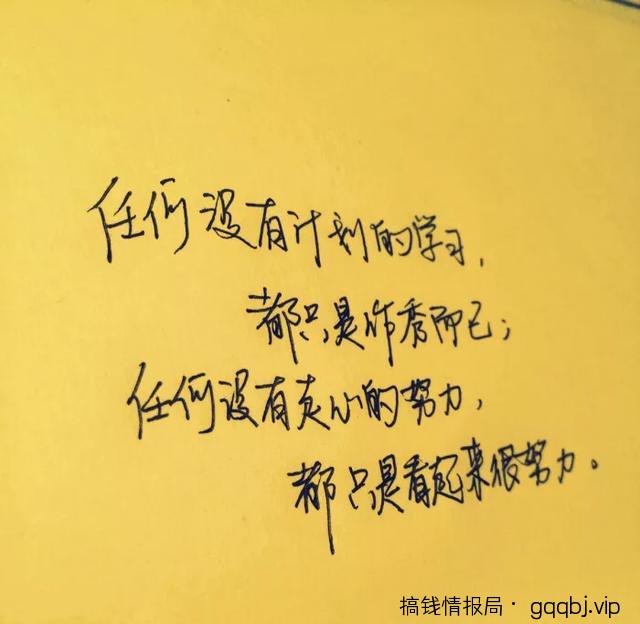 任何没有计划的学习，
都只是作秀而已；
任何没有走心的努力，
都只是看起来很努力。
搞钱情报局· gqqbj.vip